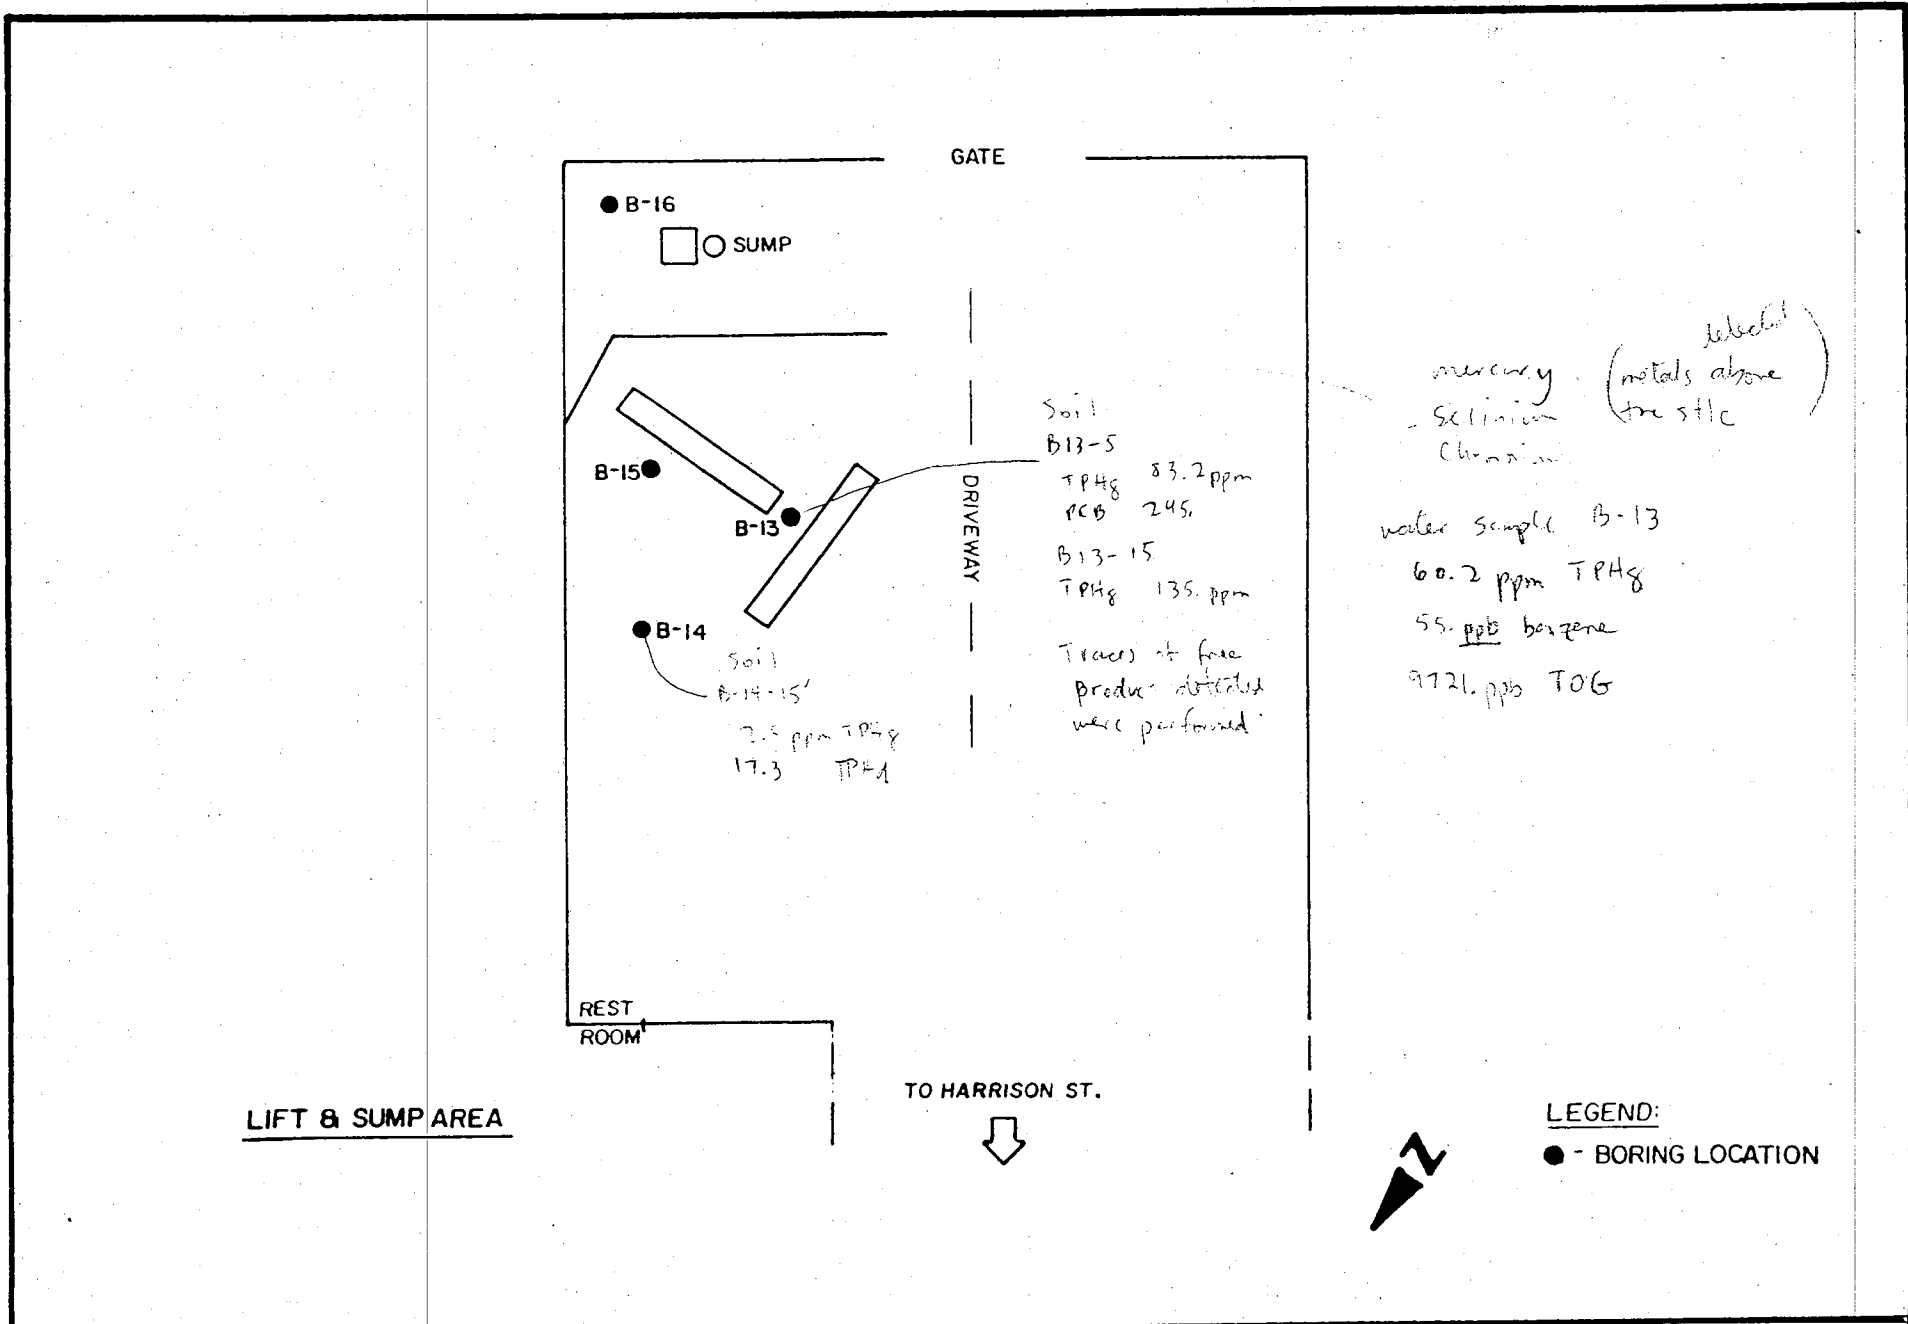 GATE
B-16
SUMP
B-15
B-13
B-14
DRIVEWAY
Soil
B13-5
TPHg 83.2 ppm
PCB 245.
B13-15
TPHg 135. ppm
Traces of free
product detected
were performed
Soil
B-14-15'
ppm TPHg
17.3 TPHd
mercury
Selinium
Chromium
detected
(metals above
the stlc)
water sample B-13
60.2 ppm TPHg
55. ppb benzene
9721. ppb TOG
REST
ROOM
TO HARRISON ST.
LIFT & SUMP AREA
LEGEND:
● - BORING LOCATION
N